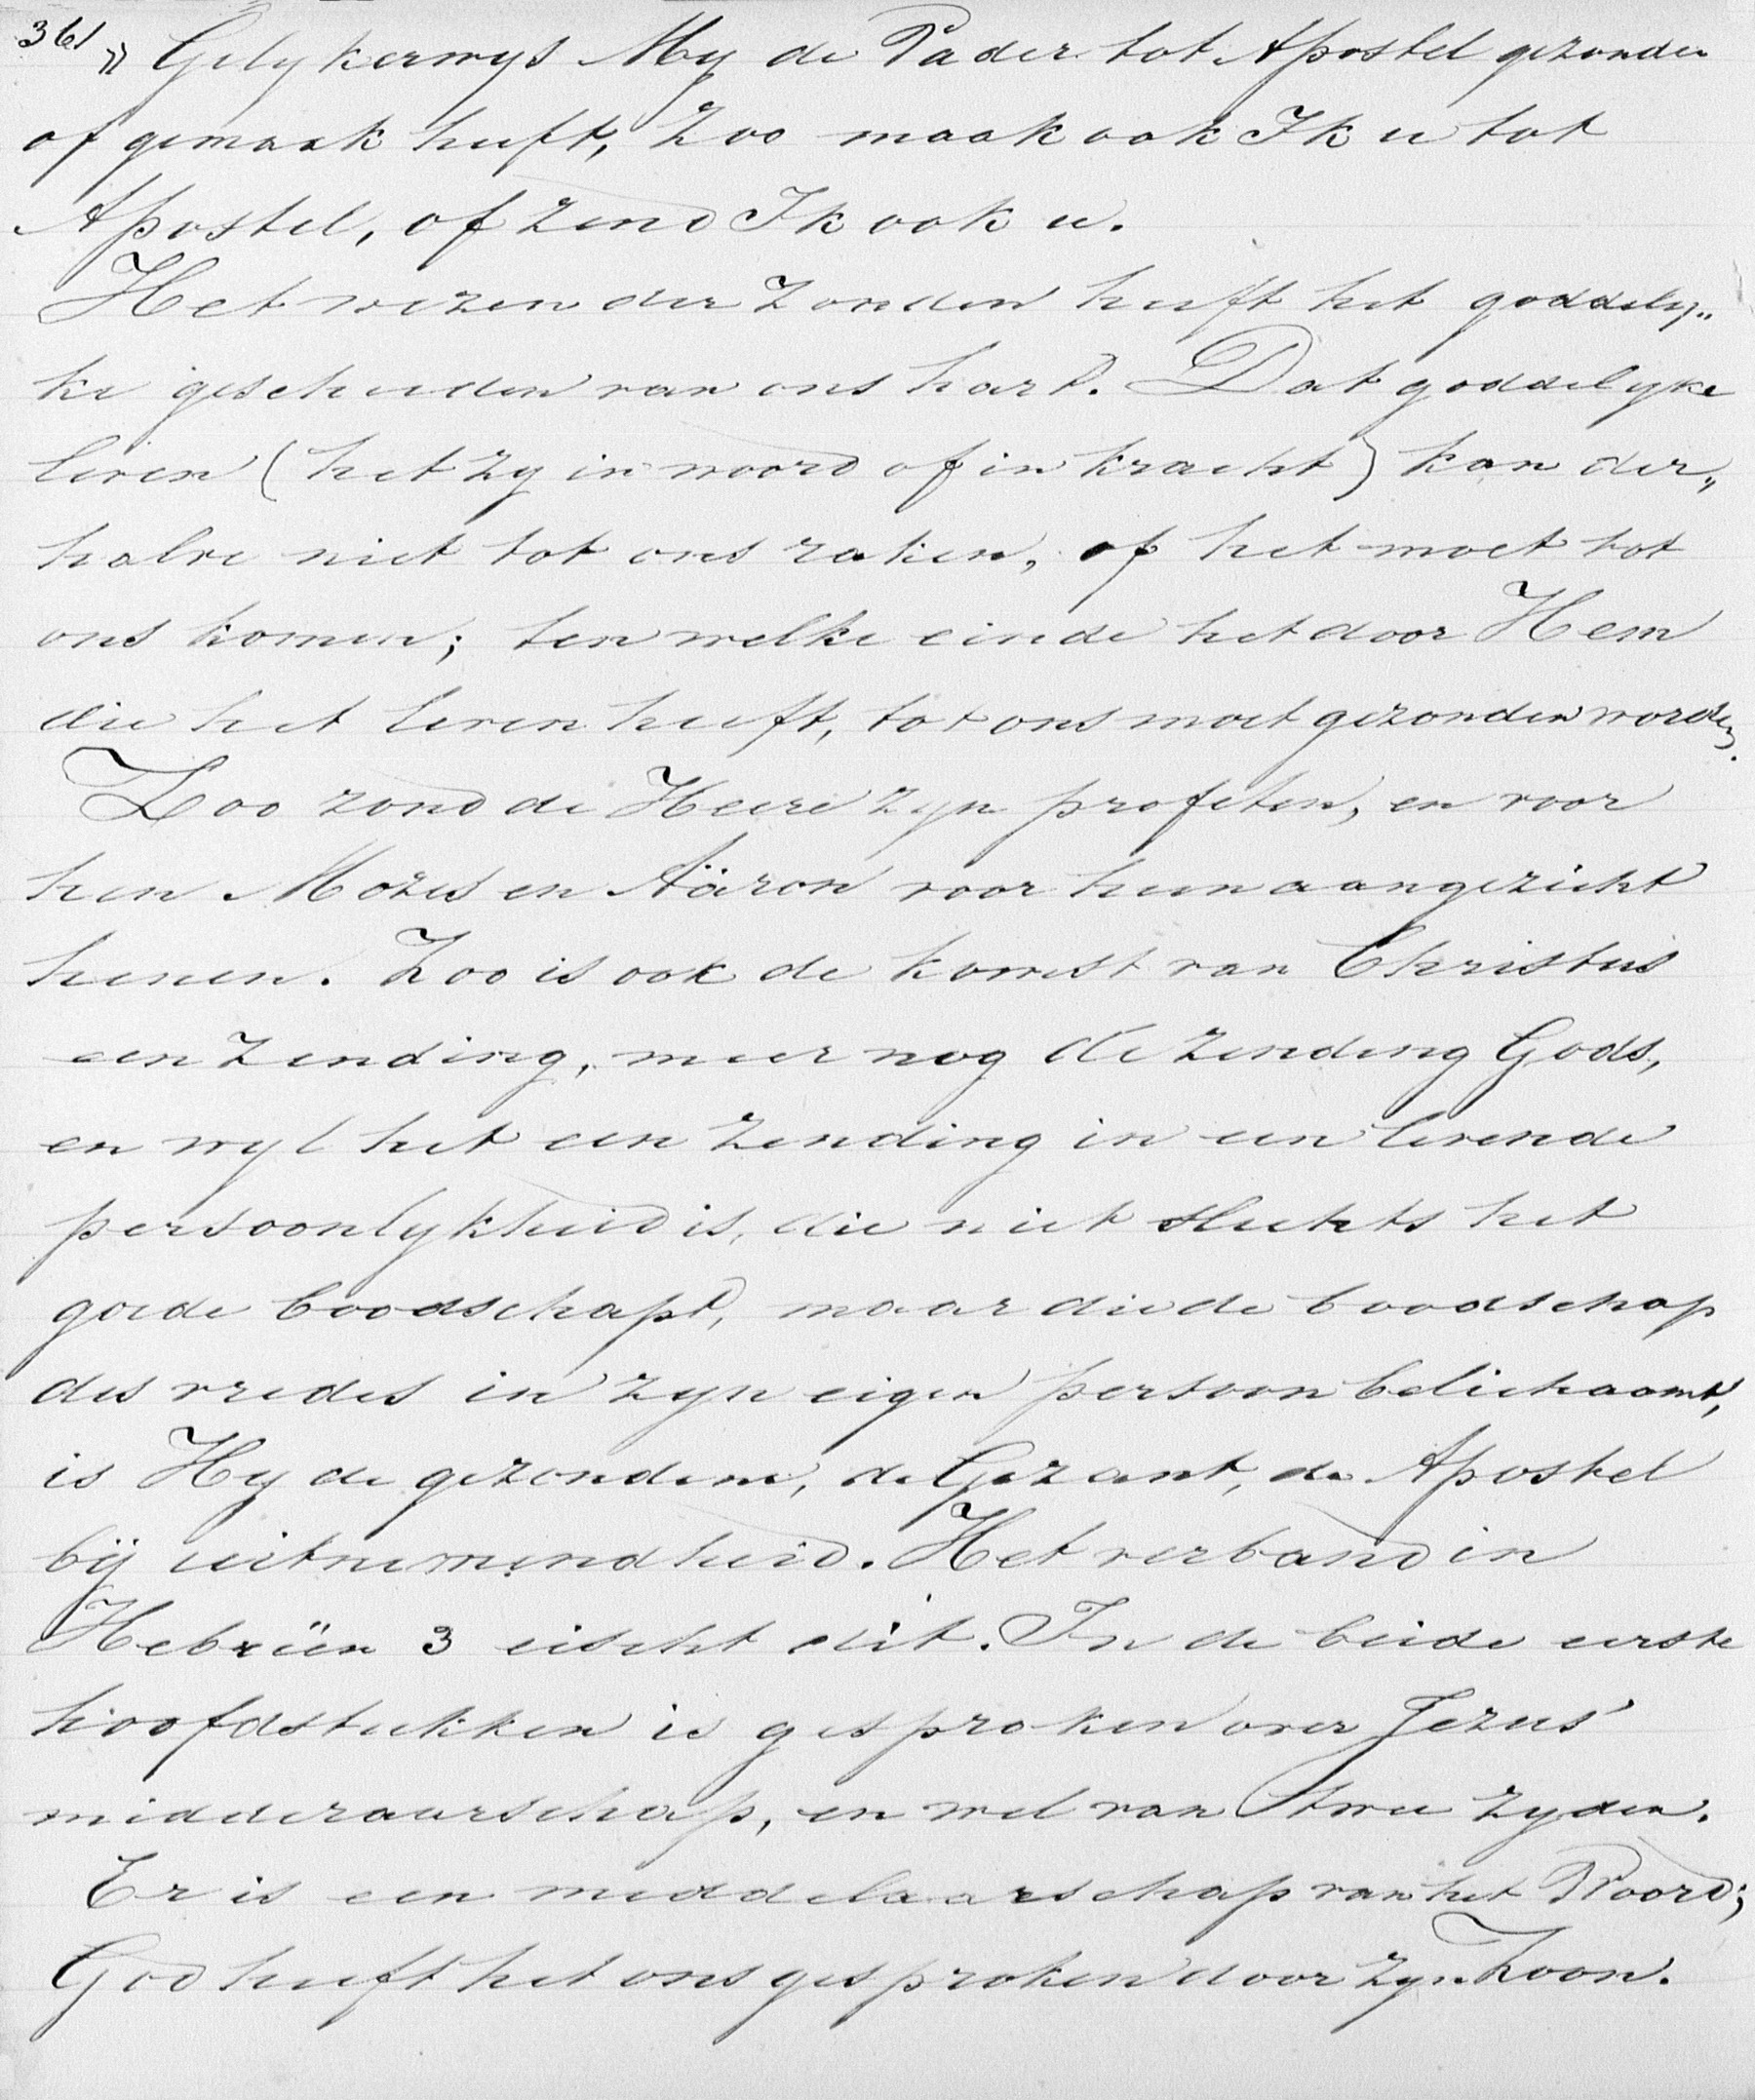 361
" Gelykerwys My de Vader tot Apostel gezonden
of gemaak heeft, zoo maak ook Ik u tot
Apostel, of zend Ik ook u.
Het wezen der zonden heeft het goddely„
ke gescheiden van ons hart. Dat goddelyke
leven (het zy in woord of in kracht) kan der„
halve niet tot ons raken, of het moet tot
ons komen; ten welke einde het door Hem
die het leven heeft, tot ons moet gezonden worden.
Zoo zond de Heere zyn profeten, en voor
hen Mozes en Aäron voor hun aangezicht
henen. Zoo is ook de komst van Christus
een zending, meer nog de zending Gods,
en wyl het een zending in een levende
persoonlykheid is, die niet slechts het
goede boodschapt, maar die de boodschap
des vredes in zyn eigen persoon belichaamt,
is Hy de gezondene, de Gezant, de Apostel
bÿ uitnemendheid. Het verband in
Hebreën 3 eischt dit. In de beide eerste
hoofdstukken is gesproken over Jezus'
midderaarschap, en wel van twee zyden.
Er is een middelaarschap van het Woord;
God heeft het ons gesproken door zyn Zoon.